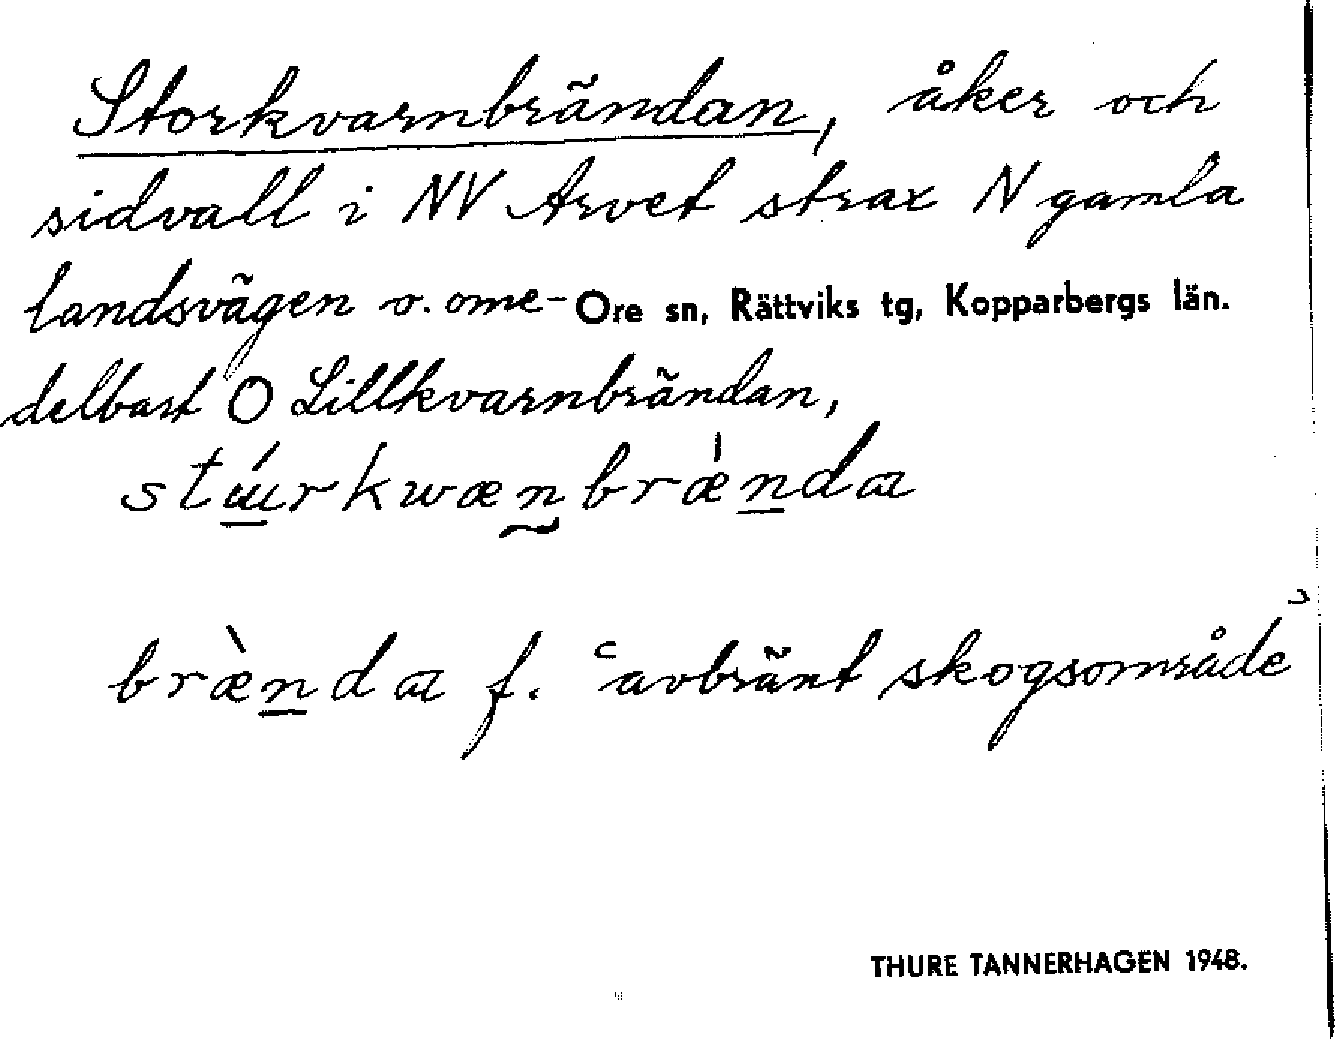 Storkvarnbrändan, åker och
sidvall i NV Arvet strax N gamla
landsvägen o. ome- Ore sn, Rättviks tg, Kopparbergs län.
delbart O Lillkvarnbrändan,
stɯ́rkwænbræ̀nda
bræ̀nda f. ‘avbränt skogsområde’
THURE TANNERHAGEN 1948.